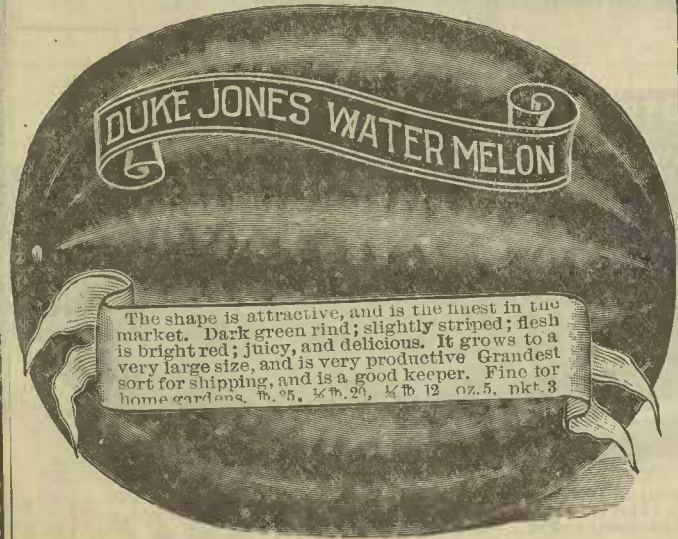 DUKE JONES WATER MELON
The shape is attractive, and is the finest in the
market. Dark green rind; slightly striped; flesh
is bright red; juicy, and delicious. It grows to a
very large size, and is very productive Grandest
sort for shipping, and is a good keeper. Fine for
home gardens. ℔.35, ½℔.20, ¼℔ 12 oz.5, pkt.3